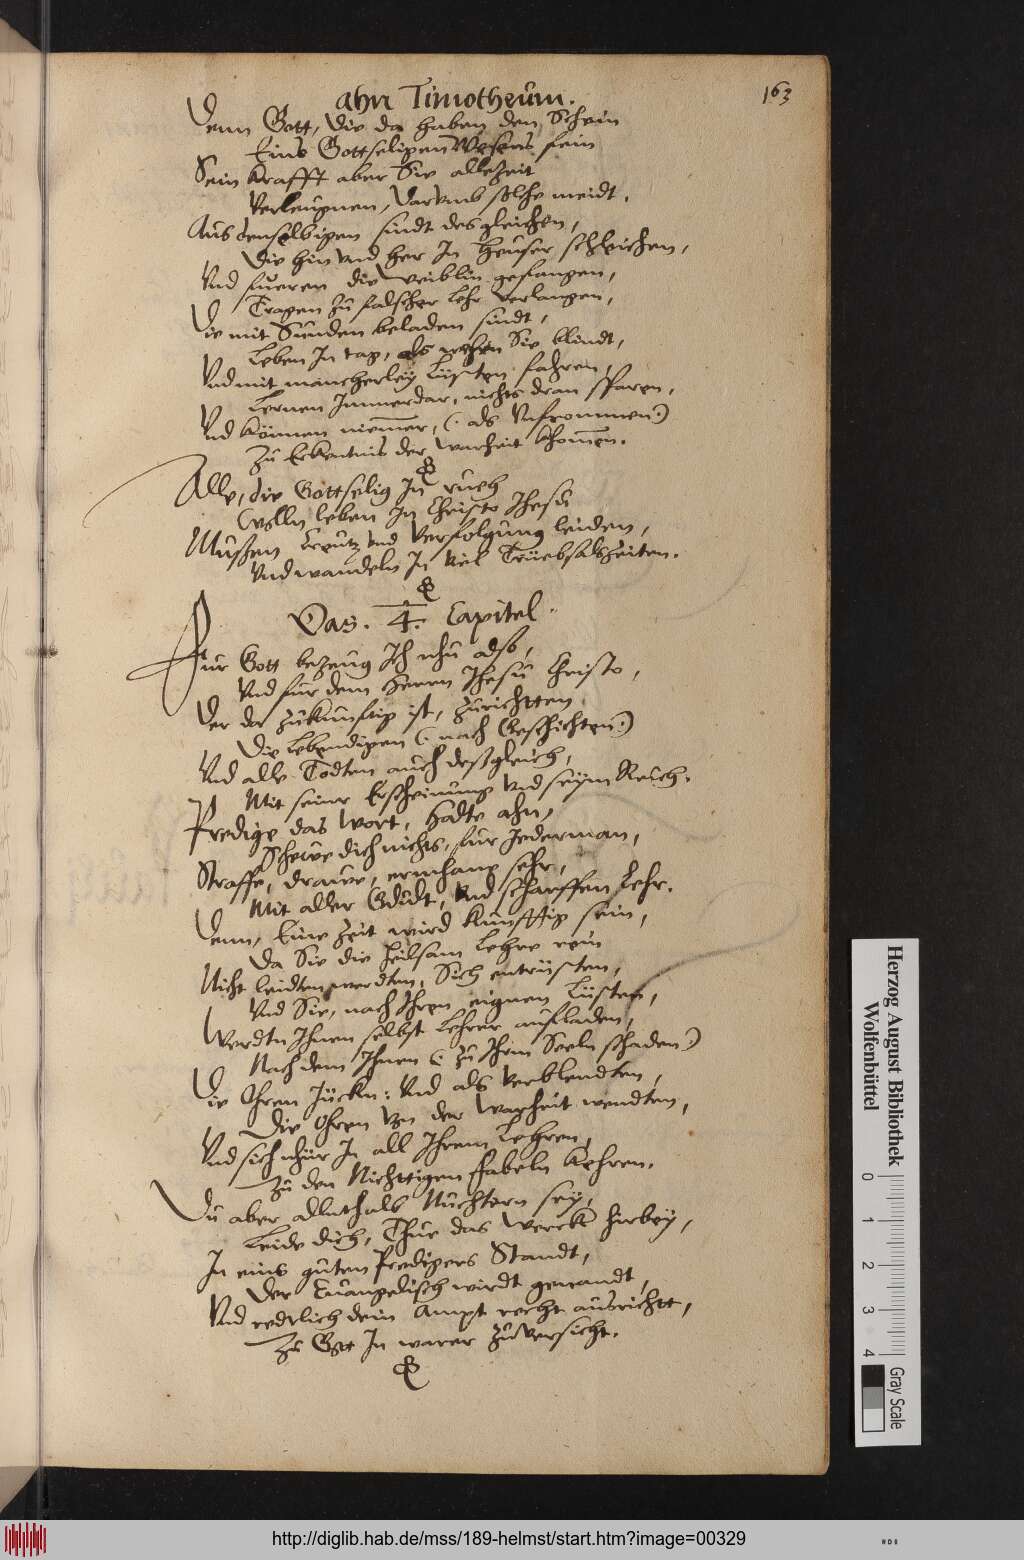 ahn Timotheum.
163
Denn Gott, die da haben den Schein
Eins Gottseligen Wesens fein
Sein Krafft aber Sie allezeit
Verleugnen, Darumb solche meidt.
Aus denselbigen sindt desgleichen,
Die hin vnd her In Heuser schleichen,
Vnd fueren die weiblin gefangen,
Tragen zu falscher Lehr verlangen,
Die mit Sunden beladen sindt,
Leben In tag, als wehren Sie blindt,
Vnd mit mancherleÿ Lüsten fahren,
Lernen Immerdar, nichts dran sparen,
Vnd können niemer, (: als Vnfrommen:)
Zu Erkentnis der Warheit khomen.
Alle, die Gottselig In rueh
Wolln leben In Christo Jhesu
Mußen Creutz vnd Verfolgung leiden,
Vnd wandeln In viel Trüebsalszeiten.
Das. 4. Capitel.
Fur Gott bezeug Ich nhu also,
Vnd fur dem Herrn Jhesu Christo,
Der da zukunftig ist, zurichten
Die Lebendigen (: nach Geschichten:)
Vnd alle Todten auch desgleich,
Mit seiner Erscheinung vnd seym Reich.
Predige das Wort, halte ahn,
Schewe dich nichts, fur Jederman,
Straffe, drawe, ermhane sehr,
Mit aller Gdult, vnd scharffen Lehr.
Denn, Eine Zeit wird kunfftig sein,
Da Sie die heilsam Lehre rein
Nicht leidten werdten, Sich entrüsten,
Vnd Sie, nach Ihren eignen Lüsten,
Werdtn Ihnen selbst Lehrer aufladen,
Nach dem Ihnen (: zu Ihrm Seeln schaden:)
Die Ohren Jückln: Vnd als verblendten,
Die Ohren von der Warheit wendten,
Vnd sich nhür In all Ihrem Lehren,
Zu den Nichttigen Fabeln kehren.
Du aber allnthalb Nuchtern seÿ,
Leide dich, Thue das Werck hirbeÿ,
In eins guten Predigers Standt,
Der Euangelisch wirdt genandt,
Vnd redtlich dein Ampt recht ausricht,
Zu Gott In warer Zuversicht.
Herzog August Bibliothek
Wolfenbüttel
0 1 2 3 4
Gray Scale
http://diglib.hab.de/mss/189-helmst/start.htm?image=00329